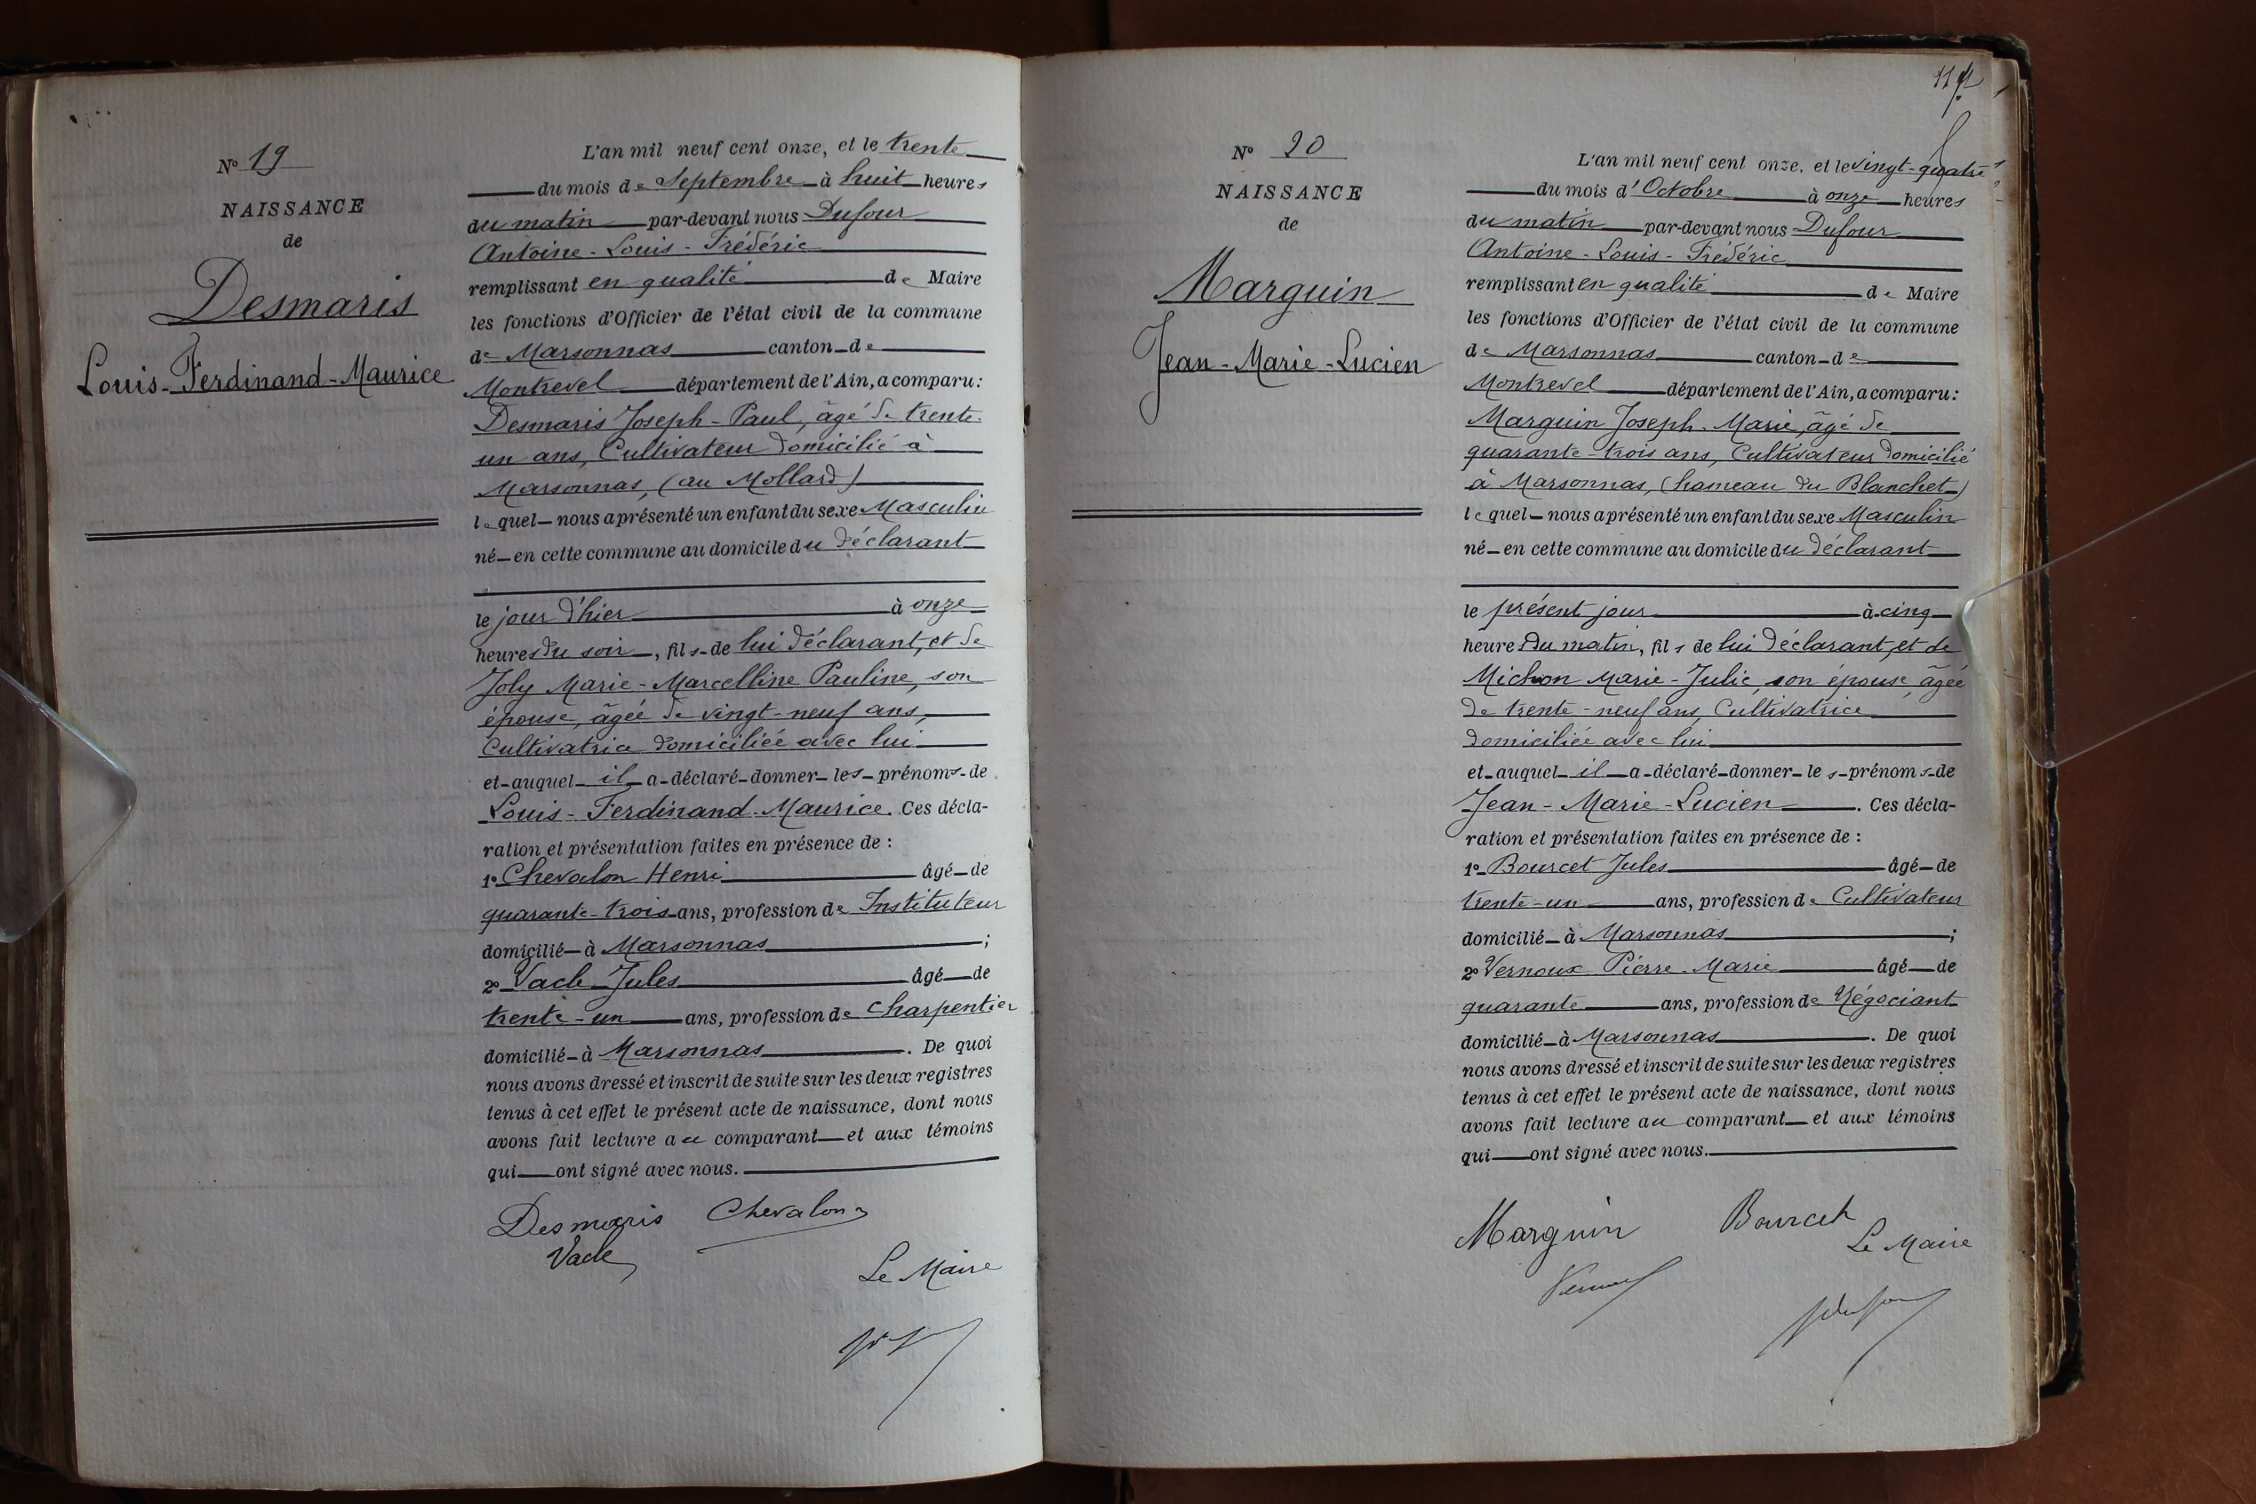 Nº 19
NAISSANCE
de
Desmaris
Louis-Ferdinand-Maurice
L'an mil neuf cent onze, et le trente
du mois de Septembre à huit heures
du matin par-devant nous Dufour
Antoine-Louis-Frédéric
remplissant en qualité de Maire
les fonctions d'Officier de l'état civil de la commune
de Marsonnas canton de
Montrevel département de l'Ain, a comparu:
Desmaris Joseph-Paul, âgé de trente-
un ans, Cultivateur domicilié à
Marsonnas, (au Mollard)
lequel nous a présenté un enfant du sexe Masculin
né en cette commune au domicile du déclarant
le jour d'hier à onze
heures du soir, fils de lui déclarant, et de
Joly Marie-Marcelline Pauline, son
épouse, âgée de vingt-neuf ans,
Cultivatrice domiciliée avec lui
et auquel il a déclaré donner les prénoms de
Louis-Ferdinand-Maurice. Ces décla-
ration et présentation faites en présence de :
1º Chevalon Henri âgé de
quarante-trois ans, profession de Instituteur
domicilié à Marsonnas ;
2º Vacle Jules âgé de
trente-un ans, profession de Charpentier
domicilié à Marsonnas. De quoi
nous avons dressé et inscrit de suite sur les deux registres
tenus à cet effet le présent acte de naissance, dont nous
avons fait lecture au comparant et aux témoins
qui ont signé avec nous.
Desmaris Chevalon
Vacle
Le Maire
114
Nº 20
NAISSANCE
de
Marguin
Jean-Marie-Lucien
L'an mil neuf cent onze, et le vingt-quatre
du mois d'Octobre à onze heures
du matin par-devant nous Dufour
Antoine-Louis-Frédéric
remplissant en qualité de Maire
les fonctions d'Officier de l'état civil de la commune
de Marsonnas canton de
Montrevel département de l'Ain, a comparu:
Marguin Joseph-Marie, âgé de
quarante-trois ans, Cultivateur domicilié
à Marsonnas, (hameau du Blanchet)
lequel nous a présenté un enfant du sexe Masculin
né en cette commune au domicile du déclarant
le présent jour à cinq
heures du matin, fils de lui déclarant, et de
Michon Marie-Julie, son épouse, âgée
de trente-neuf ans, Cultivatrice
domiciliée avec lui
et auquel il a déclaré donner les prénoms de
Jean-Marie-Lucien. Ces décla-
ration et présentation faites en présence de :
1º Bourcet Jules âgé de
trente-un ans, profession de Cultivateur
domicilié à Marsonnas ;
2º Vernoux Pierre-Marie âgé de
quarante ans, profession de Négociant
domicilié à Marsonnas. De quoi
nous avons dressé et inscrit de suite sur les deux registres
tenus à cet effet le présent acte de naissance, dont nous
avons fait lecture au comparant et aux témoins
qui ont signé avec nous.
Marguin Bourcet
Le Maire